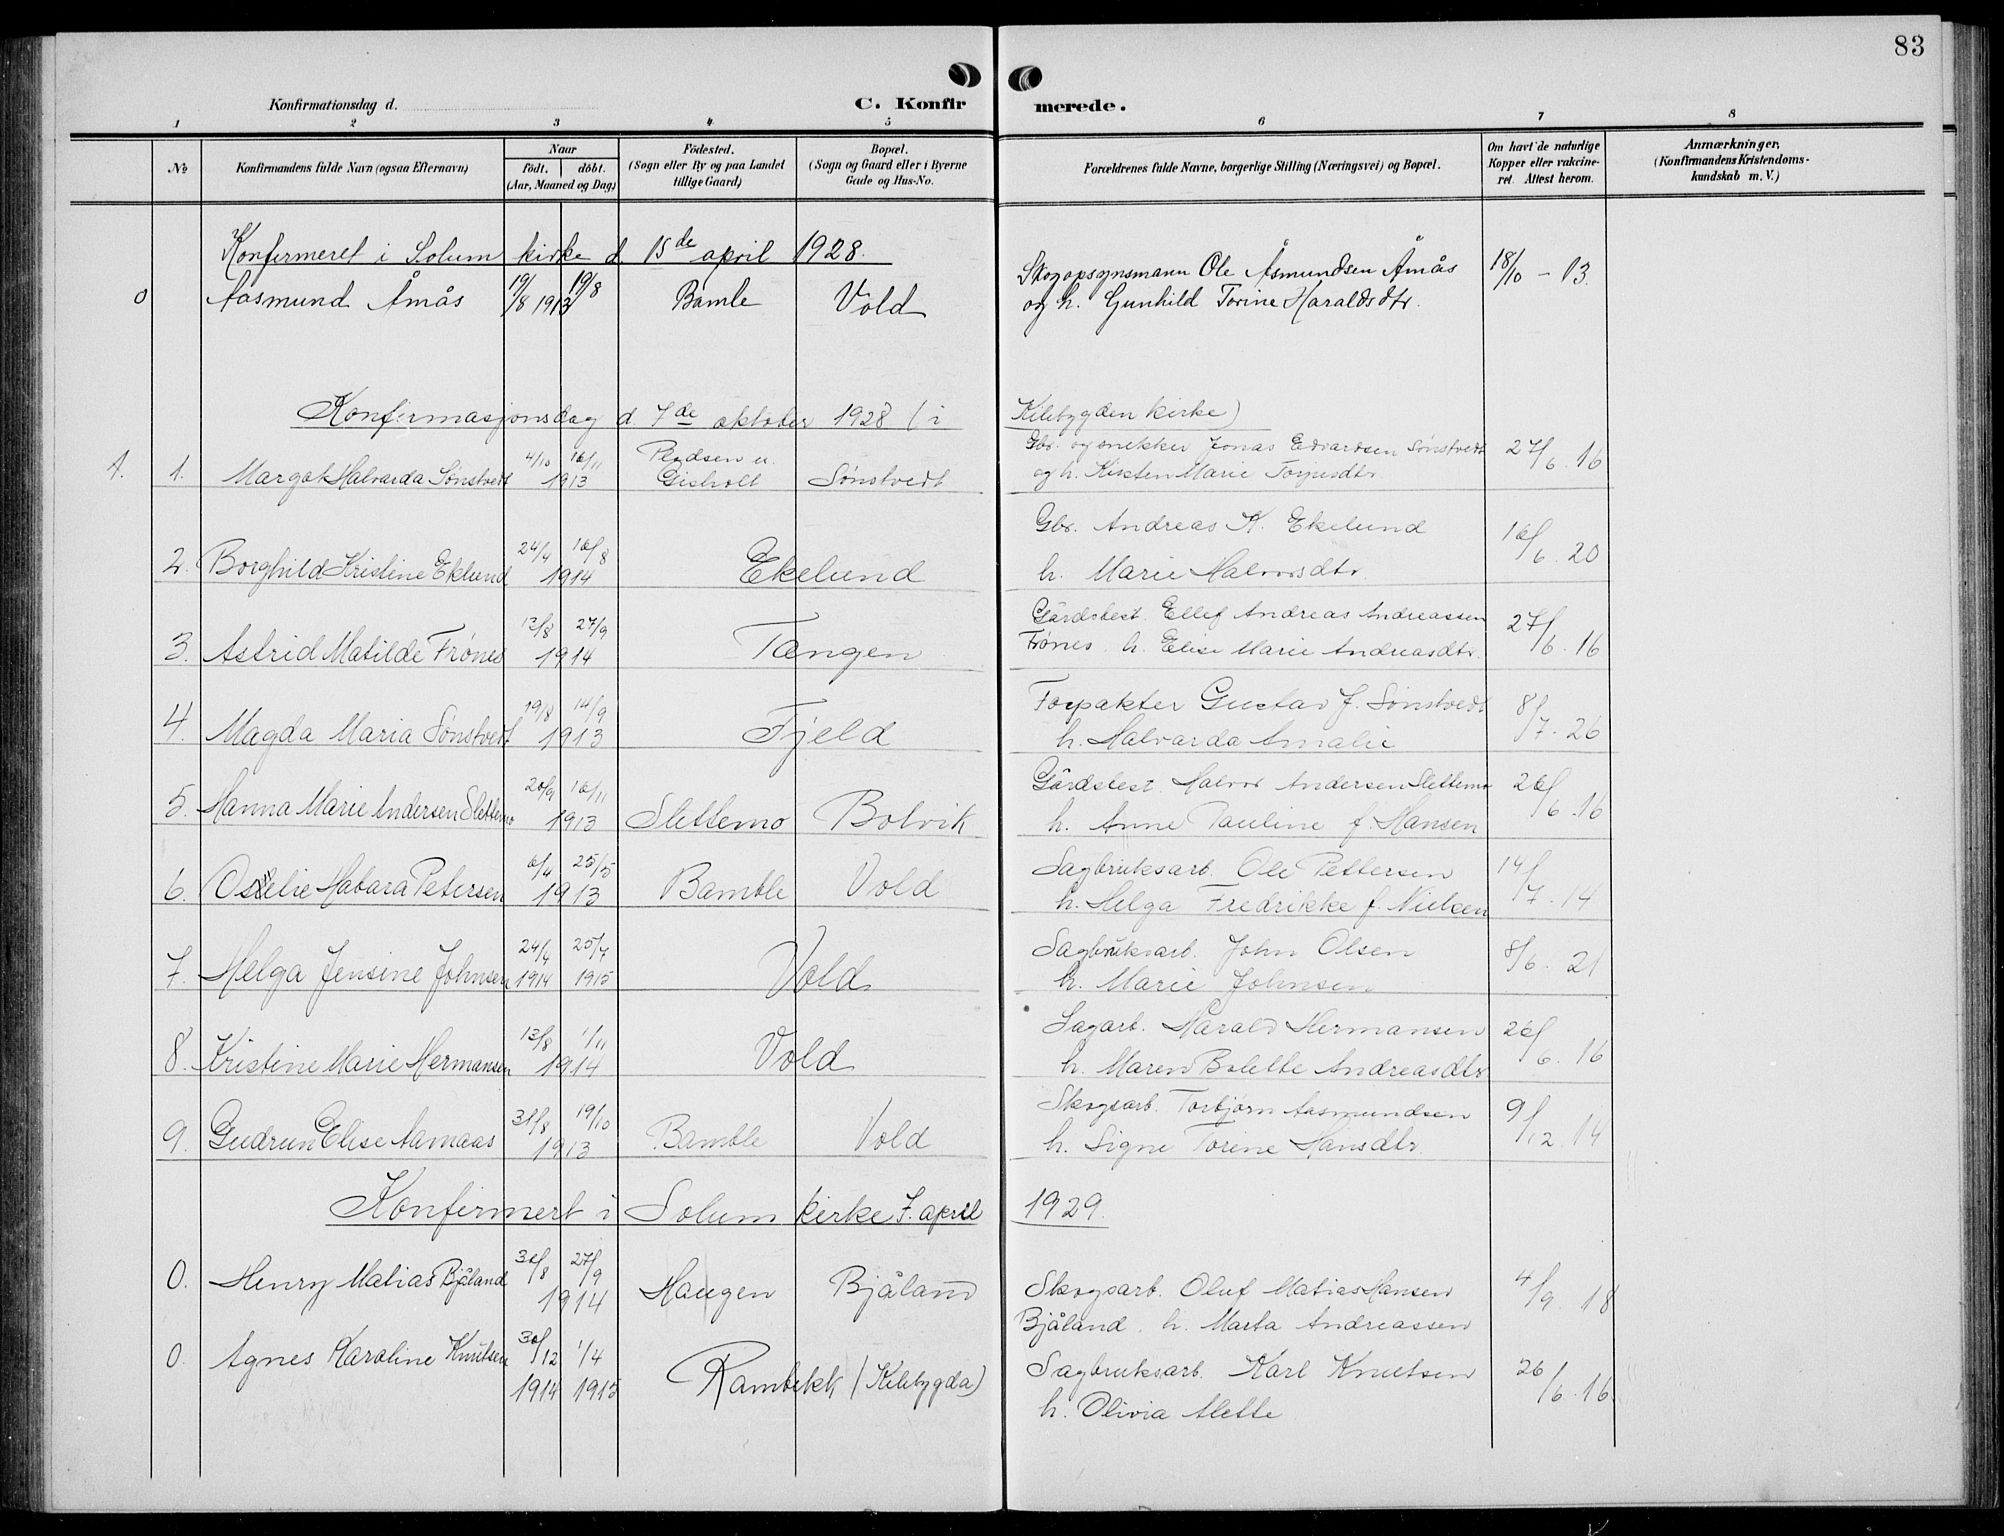 83
Konfirmationsdag d.
C. Konfirmerede.
1 2 3 4 5 6 7 8
No
Konfirmandens fulde Navn (ogsaa Efternavn)
Naar
Født. døbt.
(Aar, Maaned og Dag)
Fødested.
(Sogn eller By og paa Landet
tillige Gaard)
Bopæl.
(Sogn og Gaard eller i Byerne
Gade og Hus-No.
Forældrenes fulde Navne, borgerlige Stilling (Næringsvei) og Bopæl.
Om havt de naturlige
Kopper eller vakcine-
ret. Attest herom.
Anmærkninger,
(Konfirmandens Kristendoms-
kundskab m. V.)
Konfirmeret i Solum kirke d 15de april 1928.
0 Aasmund Åmås 19/8 1913 19/8 Bamle Vold
Skogopsynsmann Ole Åsmundsen Åmås 18/10 - 13.
og h. Gunhild Torine Haraldsdtr.
Konfirmasjonsdag d. 7de oktober 1928 (i Kilebygden kirke)
1. 1. Margot Halvarda Sønstvedt 4/10 16/11 1913 Gisholt Sønstvedt
Gbr. og snekker Jonas Edvardsen Sønstvedt 27/6. 16
og h. Kirsten Marie
2. Borghild Kristine Eklund 24/4 16/8 1914 Ekelund
Gbr. Andreas K. Ekelund 16/6. 20
h. Marie Halvorsdtr.
3. Astrid Matilde Frønes 12/8 27/9 1914 Tangen
Gårdsbest. Ellef Andreas Andreassen 27/6. 16
Frønes. h. Elise Marie Andreasdtr.
4. Magda Maria Sønstvedt 19/8 14/9 1913 Fjeld
Forpakter Gustav J. Sønstvedt 8/7. 26
h. Halvarda Amalie
5. Hanna Marie Andersen Slettemo 20/9 16/11 1913 Slettemo Bolvik
Gårdsbest. Halvor Andersen Slettemo 26/6. 16
h. Anne Pauline f. Hansen
6. Habara Petersen 6/4 25/5 1913 Bamble Vold
Sagbruksarb. Ole Pettersen 14/7. 14
h. Helga Fredrikke f. Nielsen
7. Helga Jensine Johnsen 24/4 1914 25/7 1915 Vold
Sagbruksarb. John Olsen 8/6. 21
h. Marie Johnsen
8. Kristine Marie Hermansen 13/8 1/11 1914 Vold
Sagarb. Harald Hermansen 26/6. 16
h. Maren Bolette Andreasdtr
9. Gudrun Elise Aamaas 31/8 19/10 1913 Bamble Vold
Skogsarb. Torbjørn Aasmundsen 9/12. 14
h. Signe Torine Hansdtr.
Konfirmert i Solum kirke 7. april 1929.
0. Henry Matias Bjåland 30/8 27/9 1914 Haugen Bjåland
Skogsarb. Oluf Matias Hansen 4/9 18
Bjåland. h. Marta Andreassen
0. Agnes Karoline Knutsen 30/12 1914 1/4 1915 Rambekk (Kilebygda)
Sagbruksarb. Karl Knutsen 26/6. 16
h. Olivia Alette